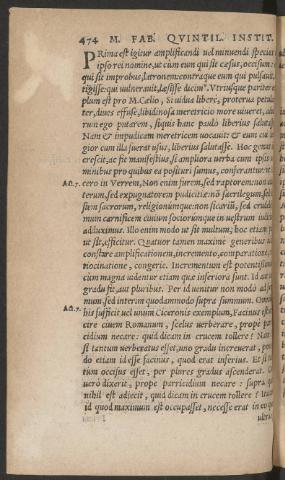 474 M. FAB. QVINTIL. INSTIT.
PRima est igitur amplificandi uel minuendi species
ipso rei nomine, ut cùm eum qui sit cæsus, occisum:
qui sit improbus, latronem: contraque eum qui pulsauit,
tigisse: qui uulnerauit, læsisse dicim⁹. Vtriusque pariter
plum est pro M. Cælio, Si uidua liberè, proterua petulan
ter, diues effuse, libidinosa meretricio more uiueret, adul
rum ego putarem, siquis hanc paulò liberius saluta
Nam & impudicam meretricem uocauit: & eum cui
gior cum illa fuerat usus, liberius salutasse. Hoc genus
crescit, ac fit manifestius, si ampliora uerba cum ipsis
minibus pro quibus ea posituri sumus, conferantur:
Act. 7. cero in Verrem, Non enim furem, sed raptorem: non
terum, sed expugnatorem pudicitiæ: nō sacrilegum,
stem sacrorum, religionumque: non sicariū, sed crudel
mum carnificem ciuium sociorumque in uestrum iudi
adduximus. Illo enim modo ut sit multum, hoc etiam
ut sit, efficitur. Quatuor tamen maximè generibus
constare amplificationem, incremento, comparatione,
tiocinatione, congerie. Incrementum est potentissi
cùm magna uidentur etiam quæ inferiora sunt. Id
gradu fit, aut pluribus. Per id uenitur non modò ad
mum, sed interim quodammodo supra summum.
his sufficit uel unum Ciceronis exemplum, Facinus est
Act. 7. cire ciuem Romanum, scelus uerberare, propè par
cidium necare: quid dicam in crucem tollere? Nam
si tantum uerberatus esset, uno gradu increuerat,
do etiam id esse facinus, quod erat inferius. Et si
tùm occisus esset, per plures gradus ascenderat.
uerò dixerit, propè parricidium necare: supra
nihil est adiecit, quid dicam in crucem tollere?
id quod maximum est occupasset, necesse erat in eo
ultra